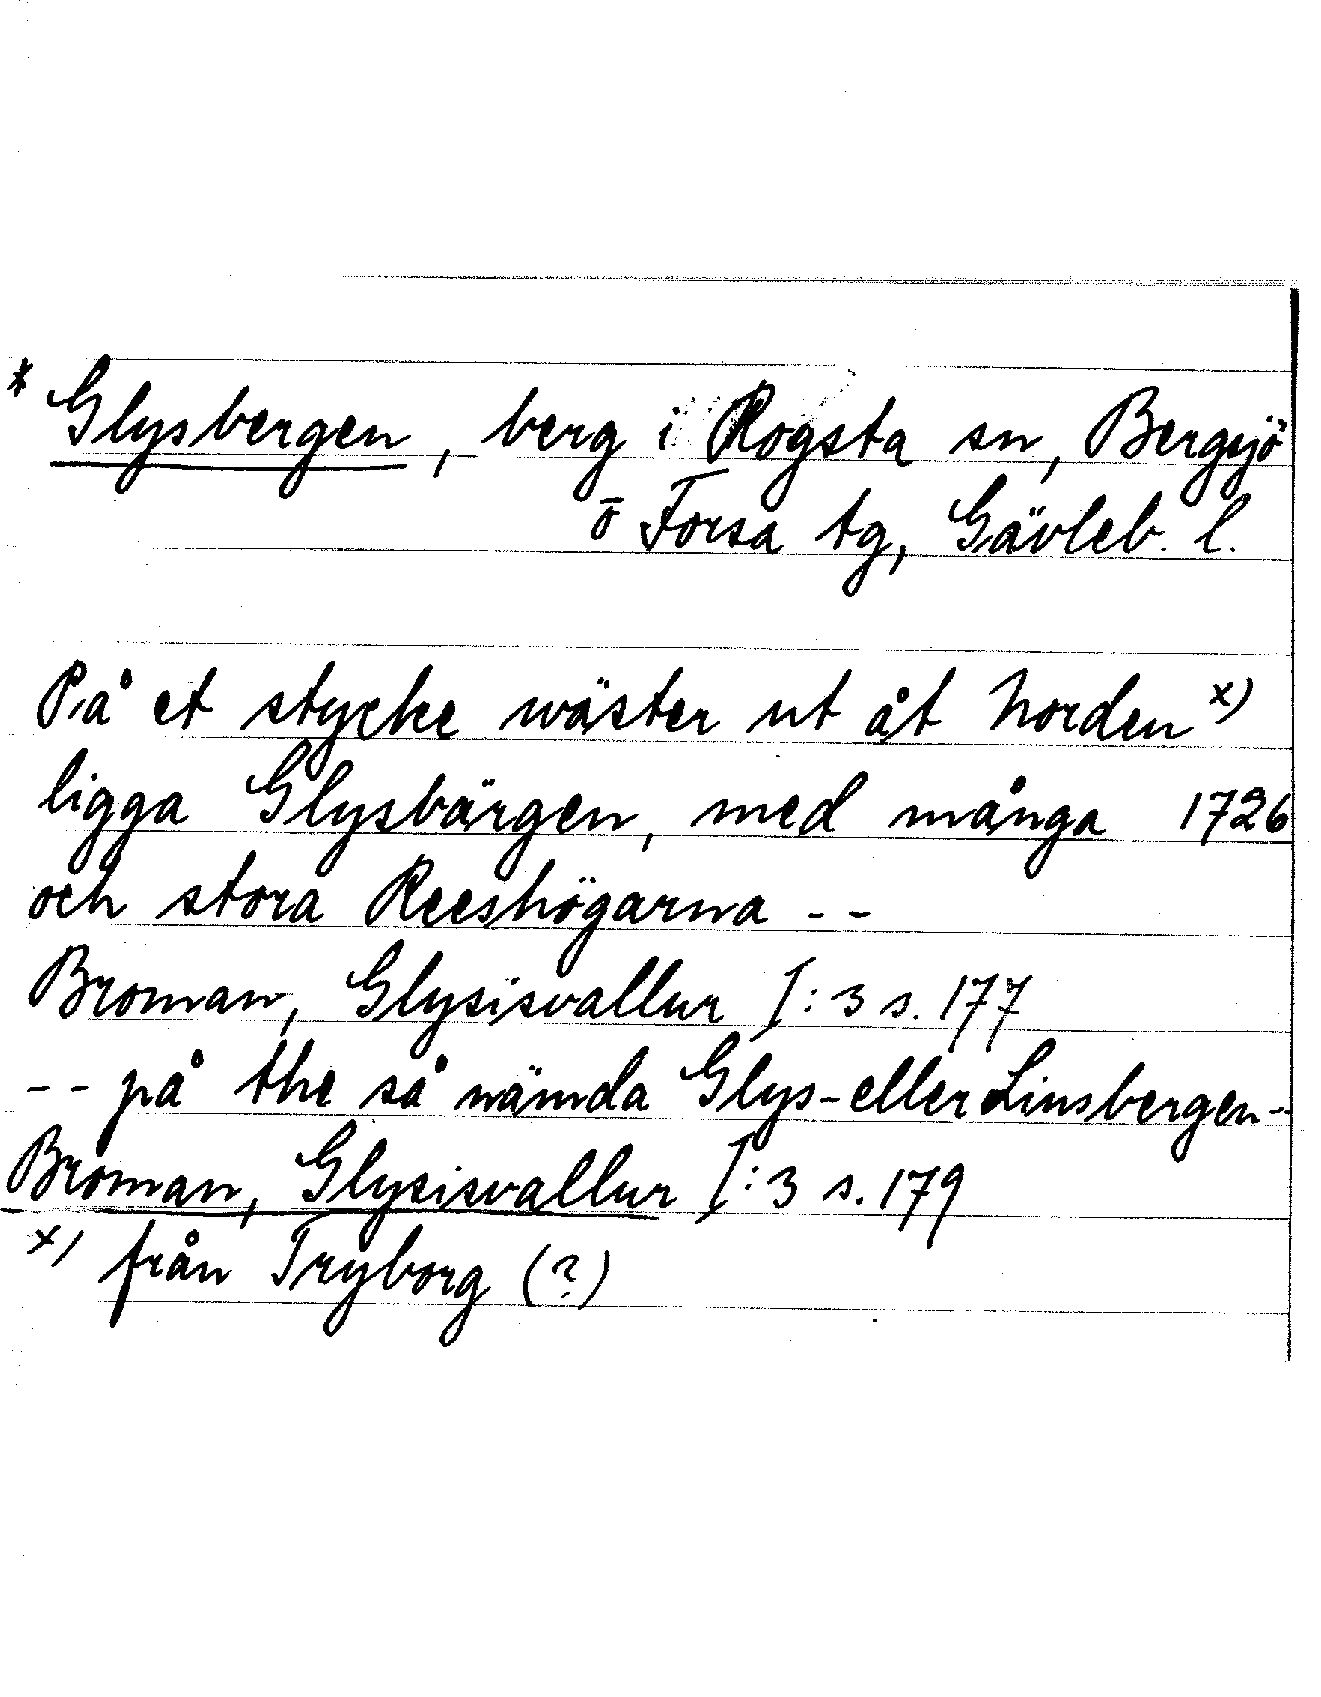 * Glysbergen, berg i Rogsta sn, Bergsjö
o Forsa tg, Gävleb. l.
På et stycke wäster ut åt Norden x)
ligga Glysbärgen, med många 1726
och stora Reeshögarna --
Broman, Glysisvallur I:3 s. 177
-- på the så nämda Glys- eller Linsbergen --
Broman, Glysisvallur I:3 s. 179
x) från Tryborg (?)